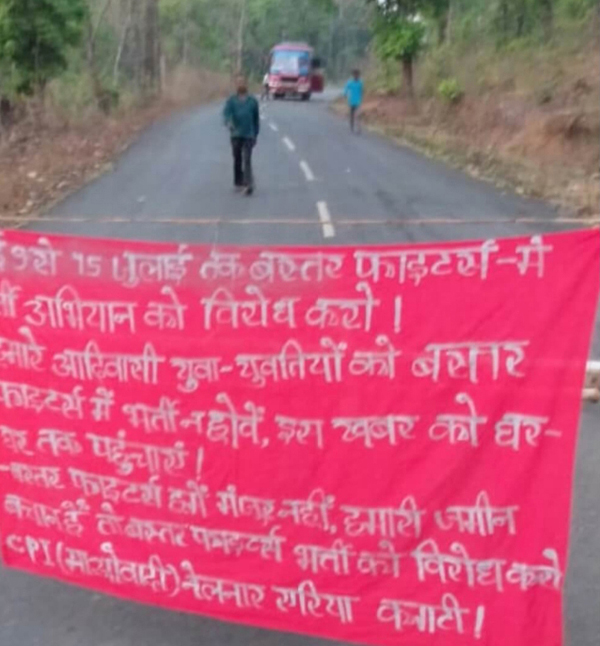 9 से 15 जुलाई तक बस्तर फाइटर्स-में
अभियान को विरोध करो!
हमारे आदिवासी युवा-युवतियों को बस्तर
फाइटर्स में भर्ती न होवें, इस खबर को घर-
घर तक पहुंचाएं!
-बस्तर फाइटर्स हमें मंजूर नहीं, हमारी जमीन
तो बस्तर फाइटर्स भर्ती को विरोध करो
CPI (माओवादी) नेलनार एरिया कमाटी!